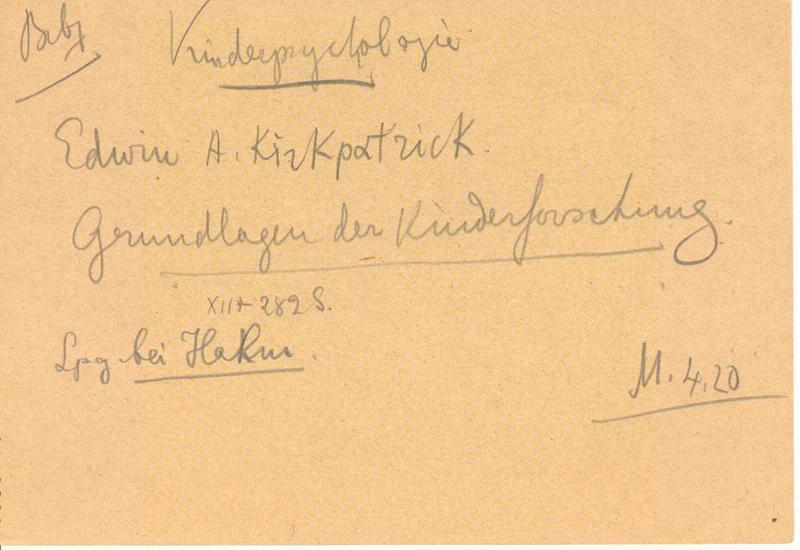 Kinderpsychologie
Edwin A. Kirkpatrick.
Grundlagen der Kinderforschung.
XII + 282 S.
Lpg bei Hahn.
M. 4.20